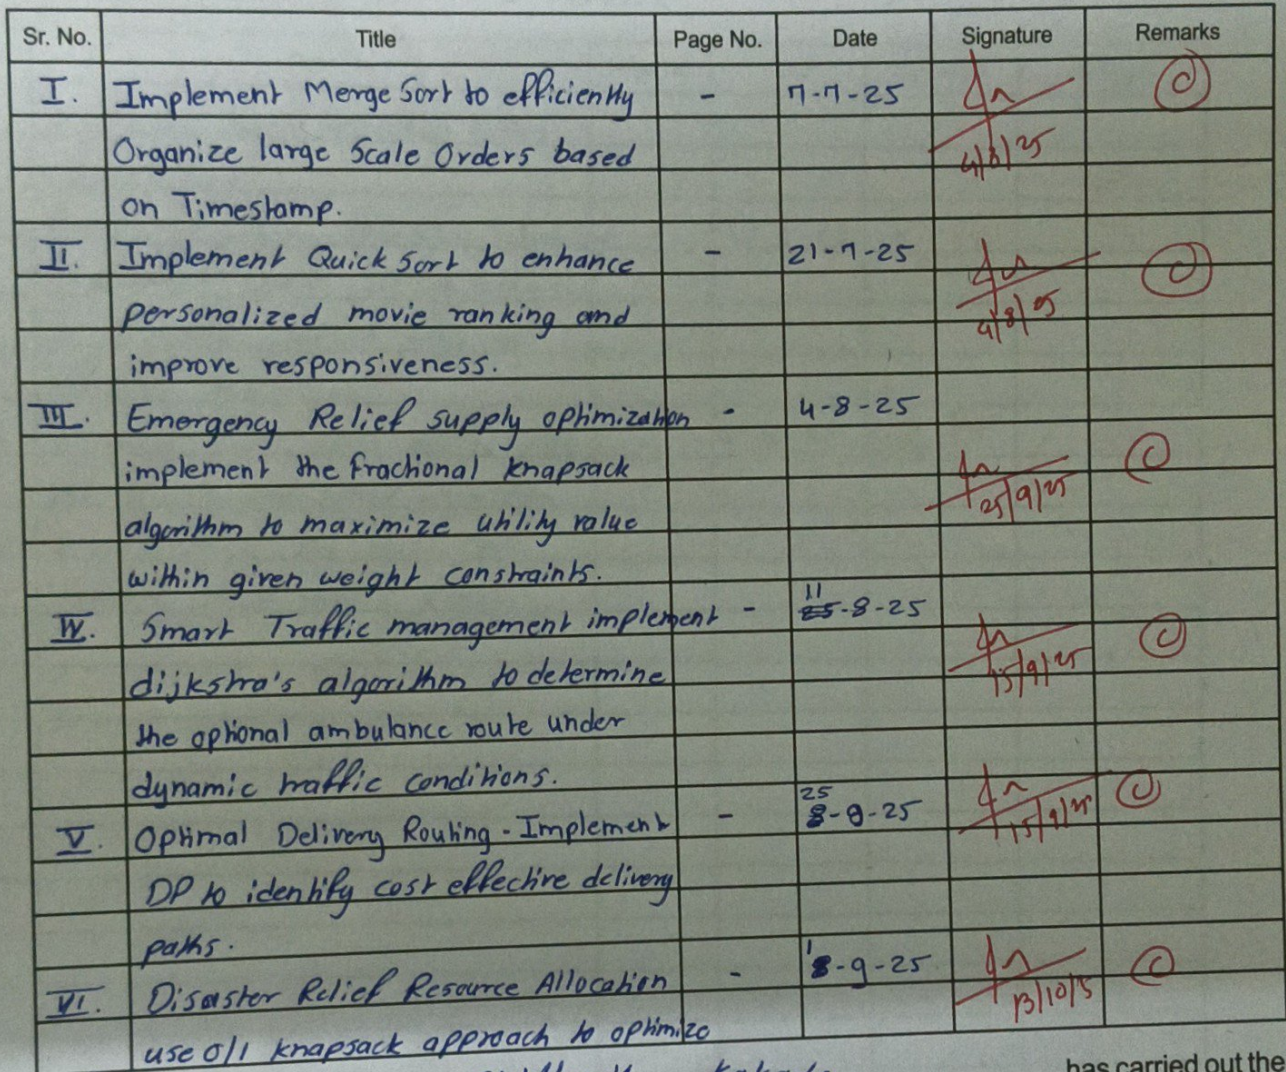 Sr. No. Title Page No. Date Signature Remarks
I. Implement Merge Sort to efficiently - 7-7-25
Organize large Scale Orders based 4/8/25
on Timestamp.
II. Implement Quick Sort to enhance - 21-7-25
personalized movie ranking and 4/8/25
improve responsiveness.
III. Emergency Relief supply optimization - 4-8-25
implement the fractional knapsack
algorithm to maximize utility value 25/9/25
within given weight constraints.
11
IV. Smart Traffic management implement - -8-25
dijkstra's algorithm to determine 15/9/25
the optional ambulance route under
dynamic traffic conditions.
25
V. Optimal Delivery Routing - Implement - -8-25 15/9/25
DP to identify cost effective delivery
paths.
1
VI. Disaster Relief Resource Allocation - -9-25
use 0/1 knapsack approach to optimize
has carried out the